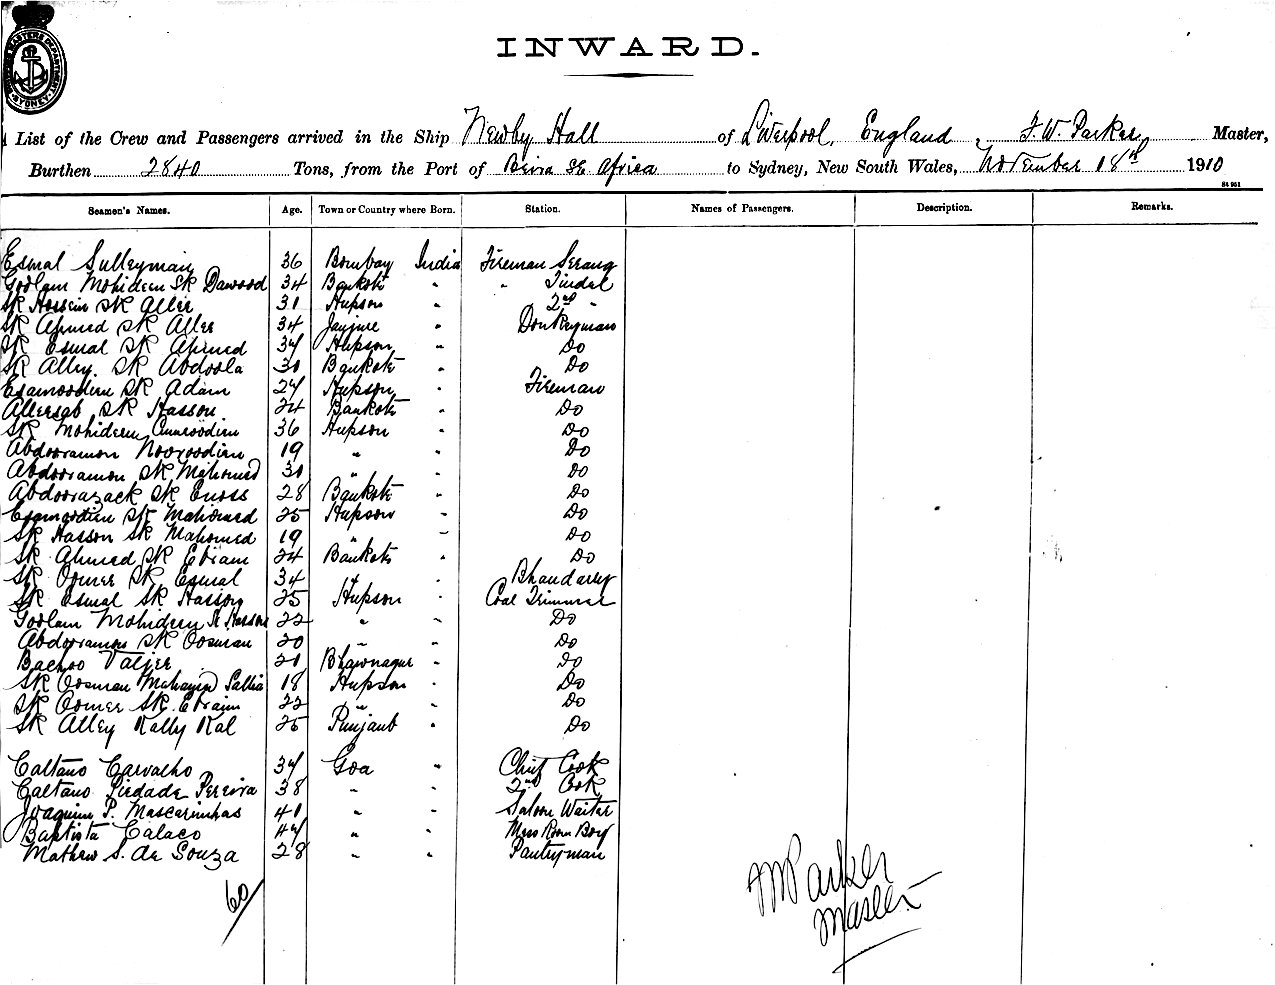 SHIPPING MASTERS DEPARTMENT SYDNEY
INWARD.
A List of the Crew and Passengers arrived in the Ship Newby Hall of Liverpool, England, F. W. Parker Master,
Burthen 2840 Tons, from the Port of Beira SE Africa to Sydney, New South Wales, November 18th 1910
Seamen's Names. Age. Town or Country where Born. Station. Names of Passengers. Description. Remarks.
Esmal Sulleyman 36 Bombay India Fireman Serang
Goolam Mohideen SK Dawood 34 Bankote " " Tindel
SK Hossein SK Aller 31 Hupson " 2nd "
SK Ahmed SK Aller 34 " Donkeyman
SK Esmal SK Ahmed 34 Hupson " Do
SK Alley SK Abdoola 30 Bankote " Do
Esamoodin SK Adam 24 Hupson " Fireman
Allersab SK Hasson 24 Bankote " Do
SK Mohideen 36 Hupson " Do
Abdooramon Nooroodin 19 " " Do
Abdooramon SK Mahomed 30 " " Do
Abdoorazack SK Enoss 28 Bankote " Do
Esamoodin SK Mahomed 25 Hupson " Do
SK Hasson SK Mahomed 19 " " Do
SK Ahmed SK Ebram 24 Bankote " Do
SK Oomer SK Esmal 34 " " Bhandarey
SK Esmal SK Hasson 25 Hupson " Coal Trimmer
Goolam Mohideen SK Hasson 22 " " Do
Abdooramon SK Oosman 20 " " Do
Bachoo Valjee 21 Bhownagur " Do
SK Oosman Sallia 18 Hupson " Do
SK Oomer SK Ebraim 22 " " Do
SK Alley Kally Kal 25 Punjaub " Do
Caetano Carvalho 34 Goa " Chief Cook
Caetano Piedade Pereira 38 " " 2nd Cook
Joaquim P. Mascarinhas 41 " " Saloon Waiter
Baptista Calaco 44 " " Mess Room Boy
Mathew S. de Souza 28 " " Pantryman
60
Parker
Master